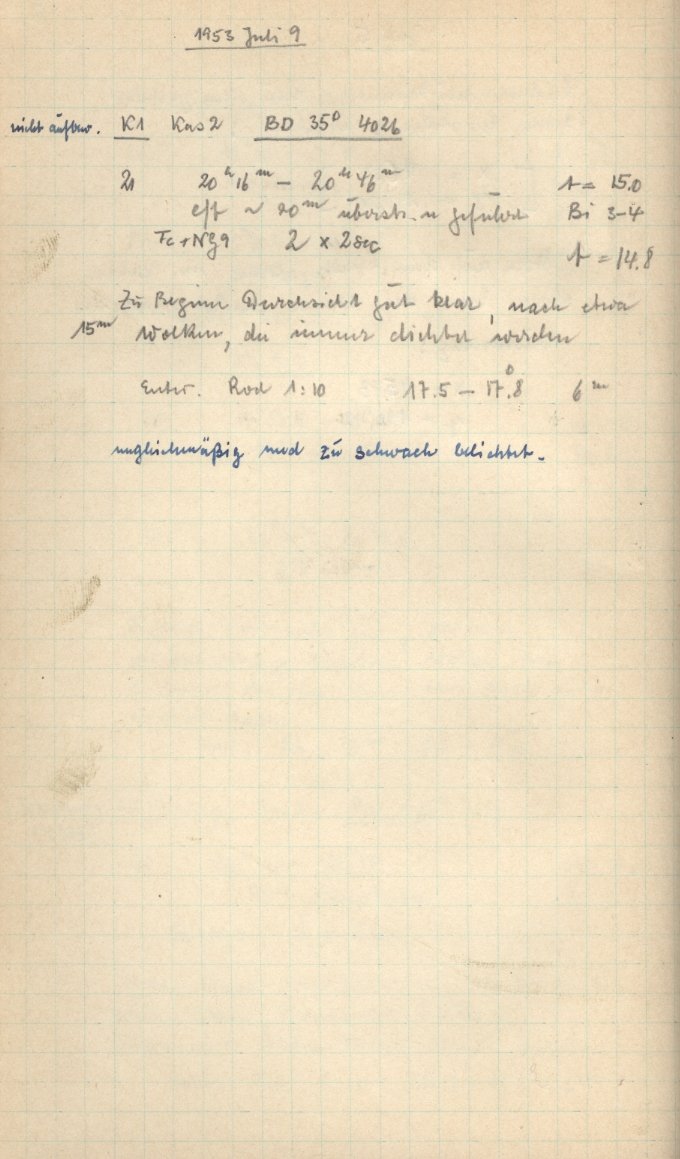 1953 Juli 9
nicht aufbew. K1 Kas 2 BD 35° 4026
21 20h 16m – 20h 46m t = 15.0
eff ~ 20m überstr. u geführt Bi 3–4
Fe + NG9 2 x 2 sec t = 14.8
Zu Beginn Durchsicht gut klar, nach etwa
15m Wolken, die immer dichter werden
Entw. Rod 1:10 17.5 – 17.8° 6m
ungleichmäßig und zu schwach belichtet.